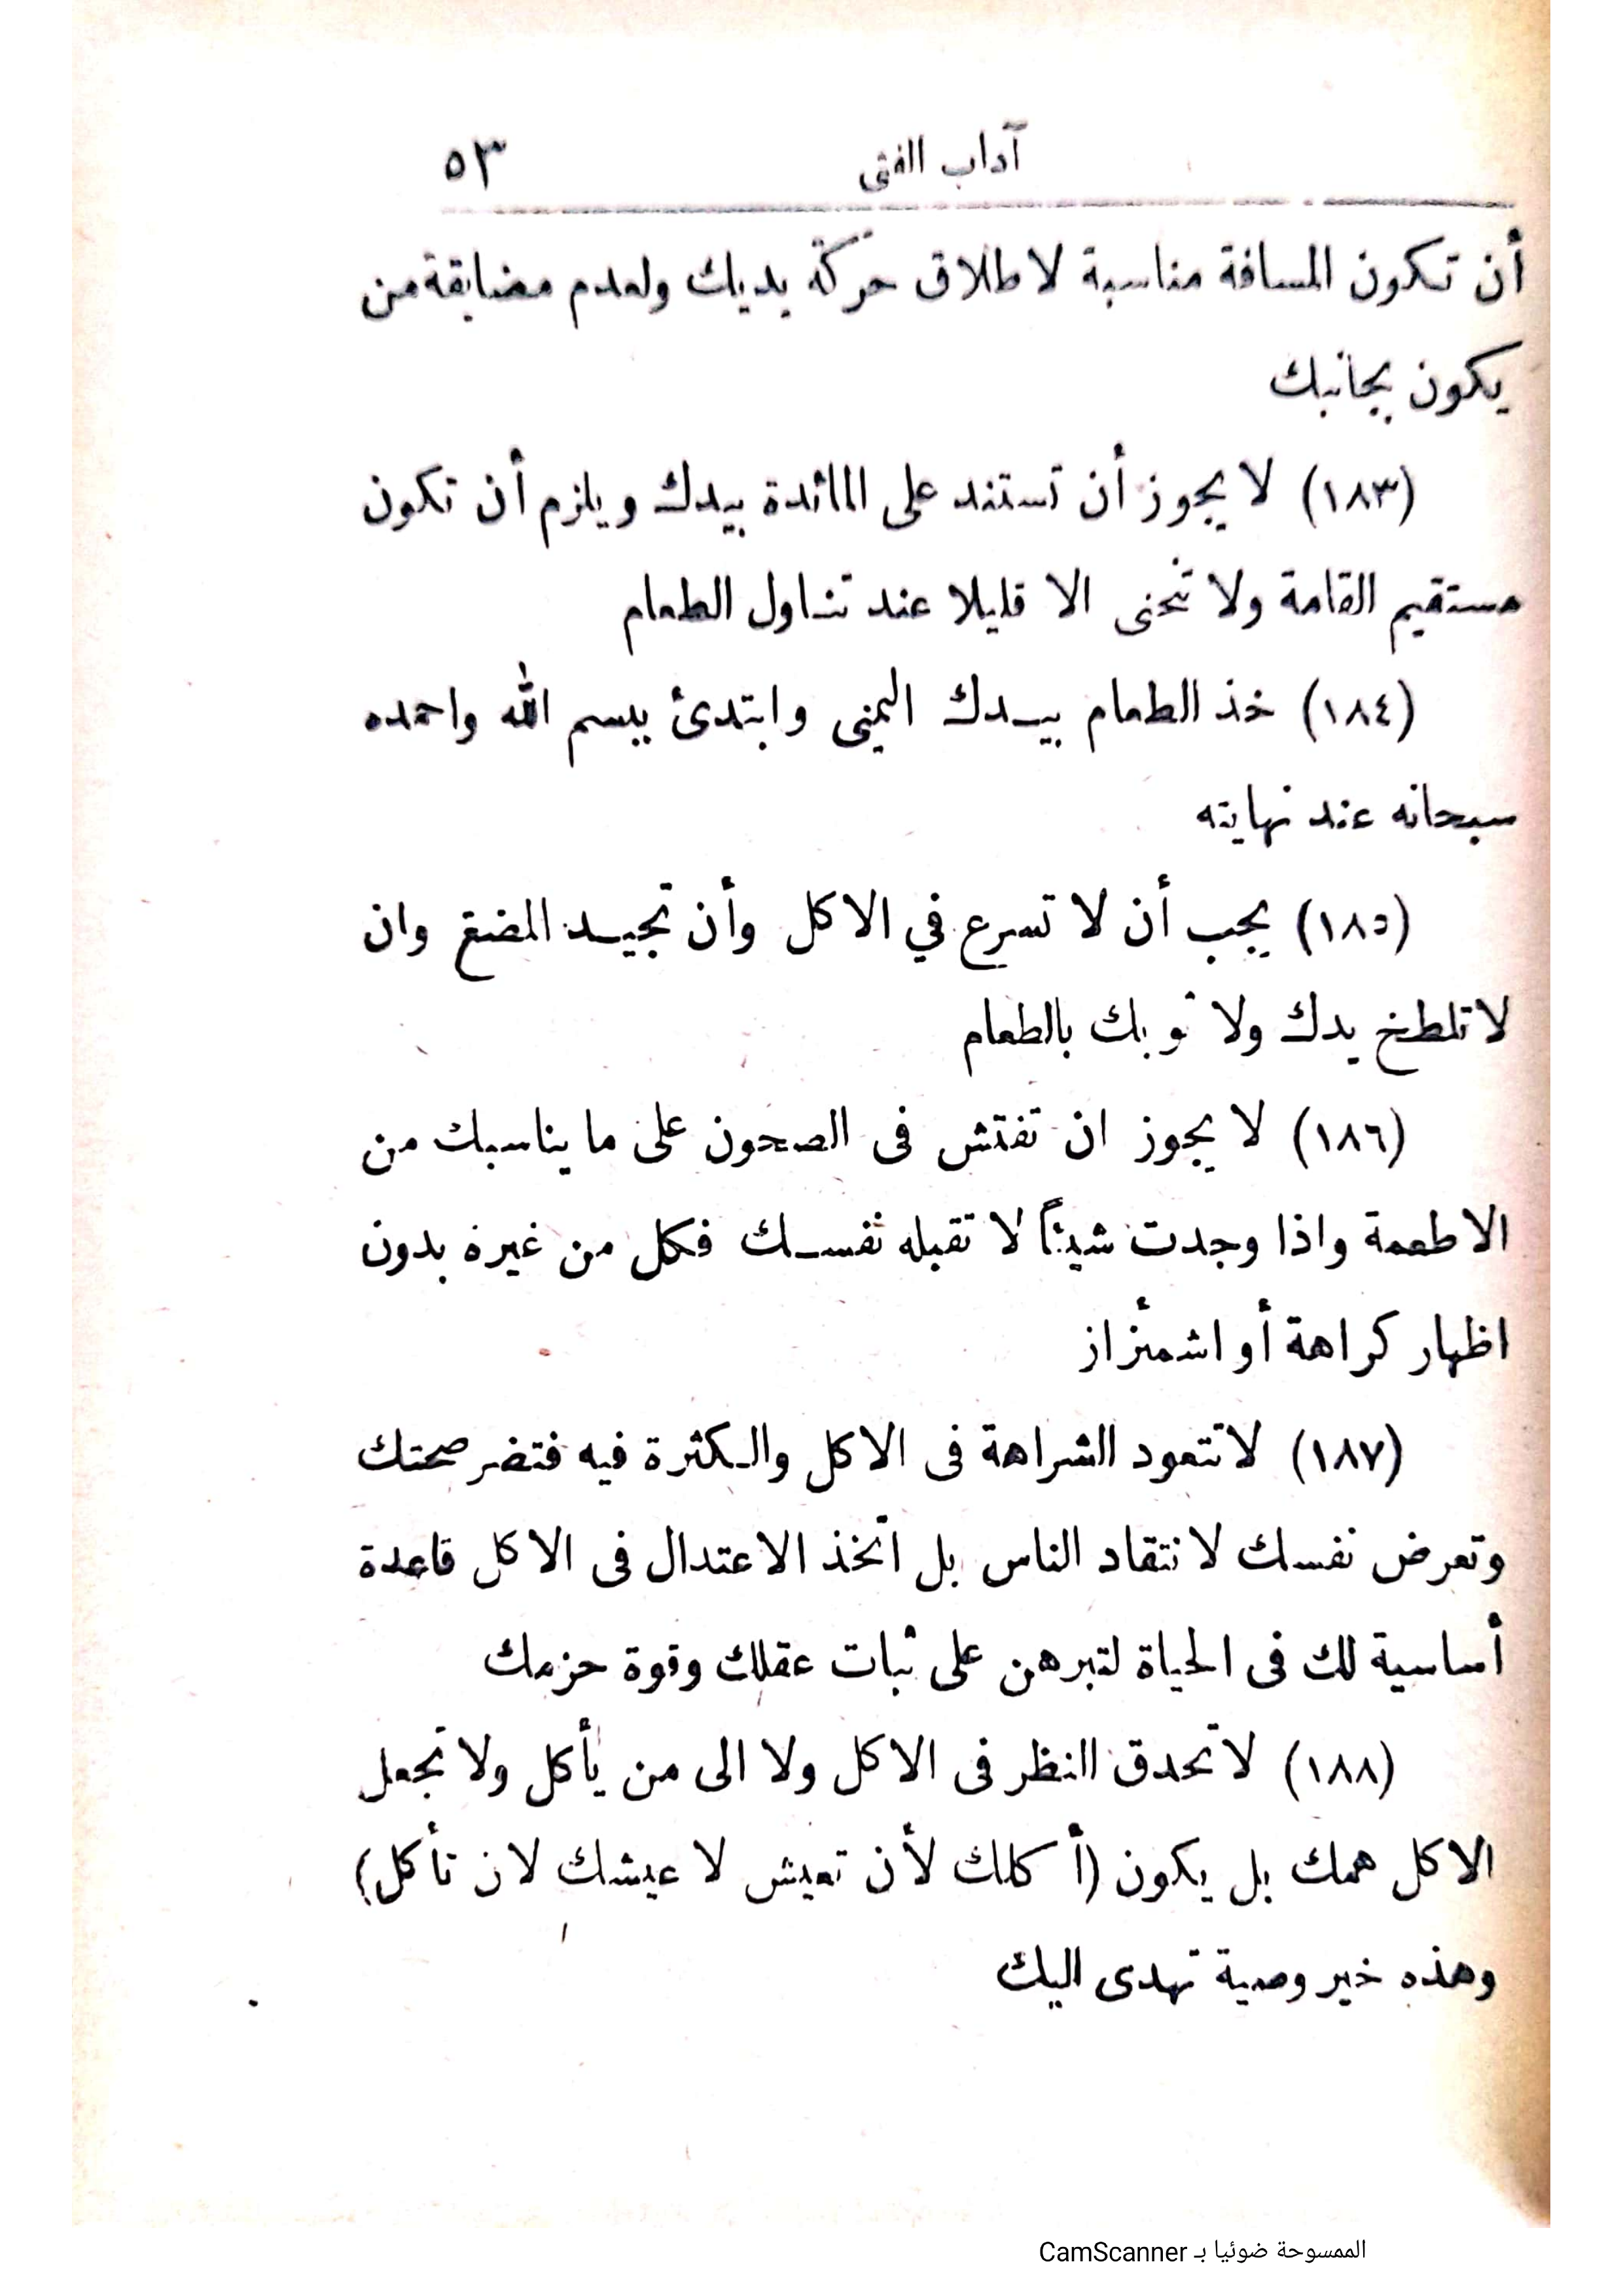 آداب الفتى ٥٣
أن تكون المسافة مناسبة لاطلاق حركة يديك ولعدم مضايقة من
يكون بجانبك
(١٨٣) لا يجوز أن تستند على المائدة بيدك ويلزم أن تكون
مستقيم القامة ولا تنحنى الا قليلا عند تناول الطعام
(١٨٤) خذ الطعام بيدك اليمنى وابتدئ ببسم الله واحمده
سبحانه عند نهايته
(١٨٥) يجب أن لا تسرع في الاكل وأن تجيد المضغ وان
لا تلطخ يدك ولا ثوبك بالطعام
(١٨٦) لا يجوز ان تفتش فى الصحون على ما يناسبك من
الاطعمة واذا وجدت شيئاً لا تقبله نفسك فكل من غيره بدون
اظهار كراهة أو اشمئزاز
(١٨٧) لا تتعود الشراهة فى الاكل والكثرة فيه فتضر صحتك
وتعرض نفسك لانتقاد الناس بل اتخذ الاعتدال فى الاكل قاعدة
أساسية لك فى الحياة لتبرهن على ثبات عقلك وقوة حزمك
(١٨٨) لا تحدق النظر فى الاكل ولا الى من يأكل ولا تجعل
الاكل همك بل يكون (أكلك لأن تعيش لا عيشك لان تأكل)
وهذه خير وصية تهدى اليك
الممسوحة ضوئيا بـ CamScanner